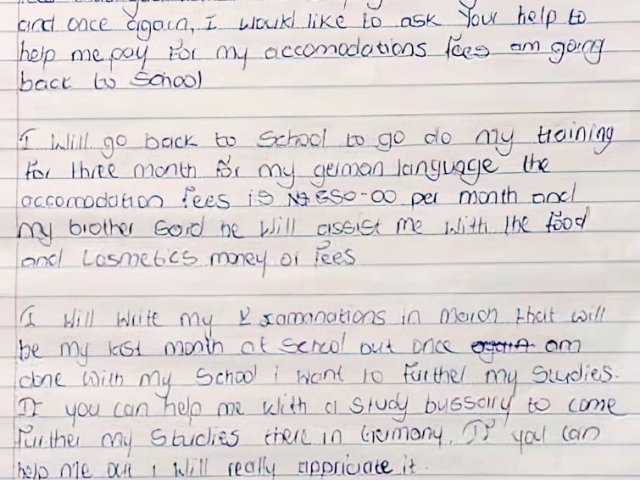 and once again, I would like to ask your help to
help me pay for my accomodations fees am going
back to School
I will go back to School to go do my training
for three month for my german language the
accomodation fees is N$ 550-00 per month and
my brother said he will assist me with the food
and Cosmetics money or fees
I will write my Examanations in march that will
be my last month at School but once again am
done with my School i want to further my Studies.
If you can help me with a study bussary to come
further my Studies there in Germany. If you can
help me out i will really appriciate it.